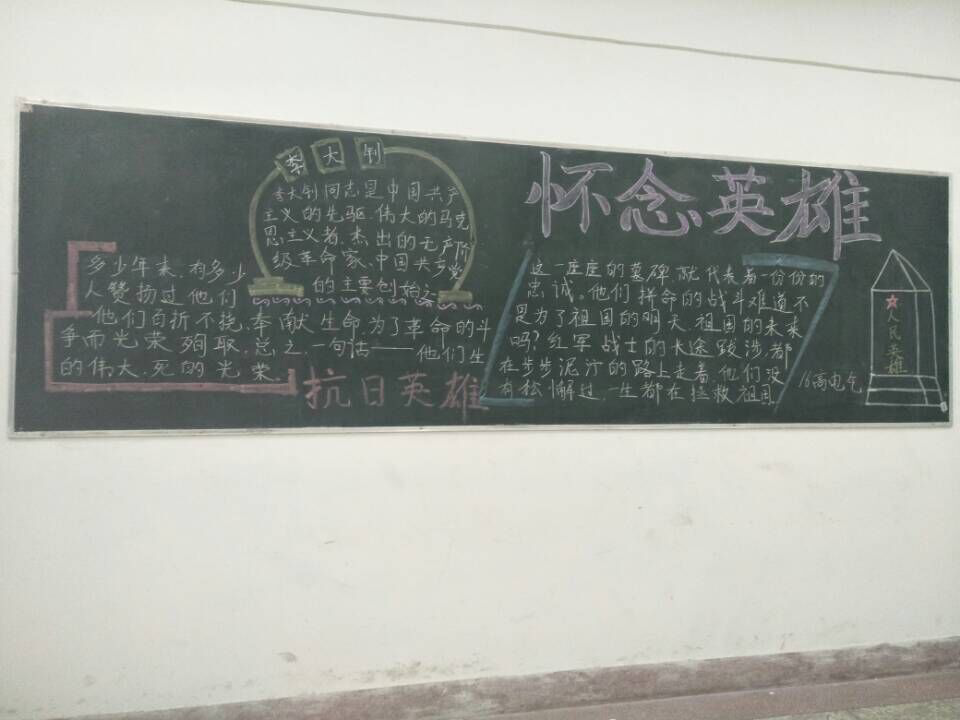 怀念英雄
李大钊
李大钊同志是中国共产
主义的先驱.伟大的马克
思主义者.杰出的无产阶
级革命家、中国共产党
的主要创始之
多少年来,有多少
人赞扬过他们
他们百折不挠,奉献生命,为了革命的斗
争而光荣殉取.总之,一句话——他们生
的伟大.死的光荣.
抗日英雄
这一座座的墓碑,就代表着一份份的
忠诚。他们拼命的战斗难道不
是为了祖国的明天.祖国的未来
吗?红军战士的长途跋涉,都
在步步泥泞的路上走着,他们没
有松懈过,一生都在拯救祖国
16高电气
人民英雄